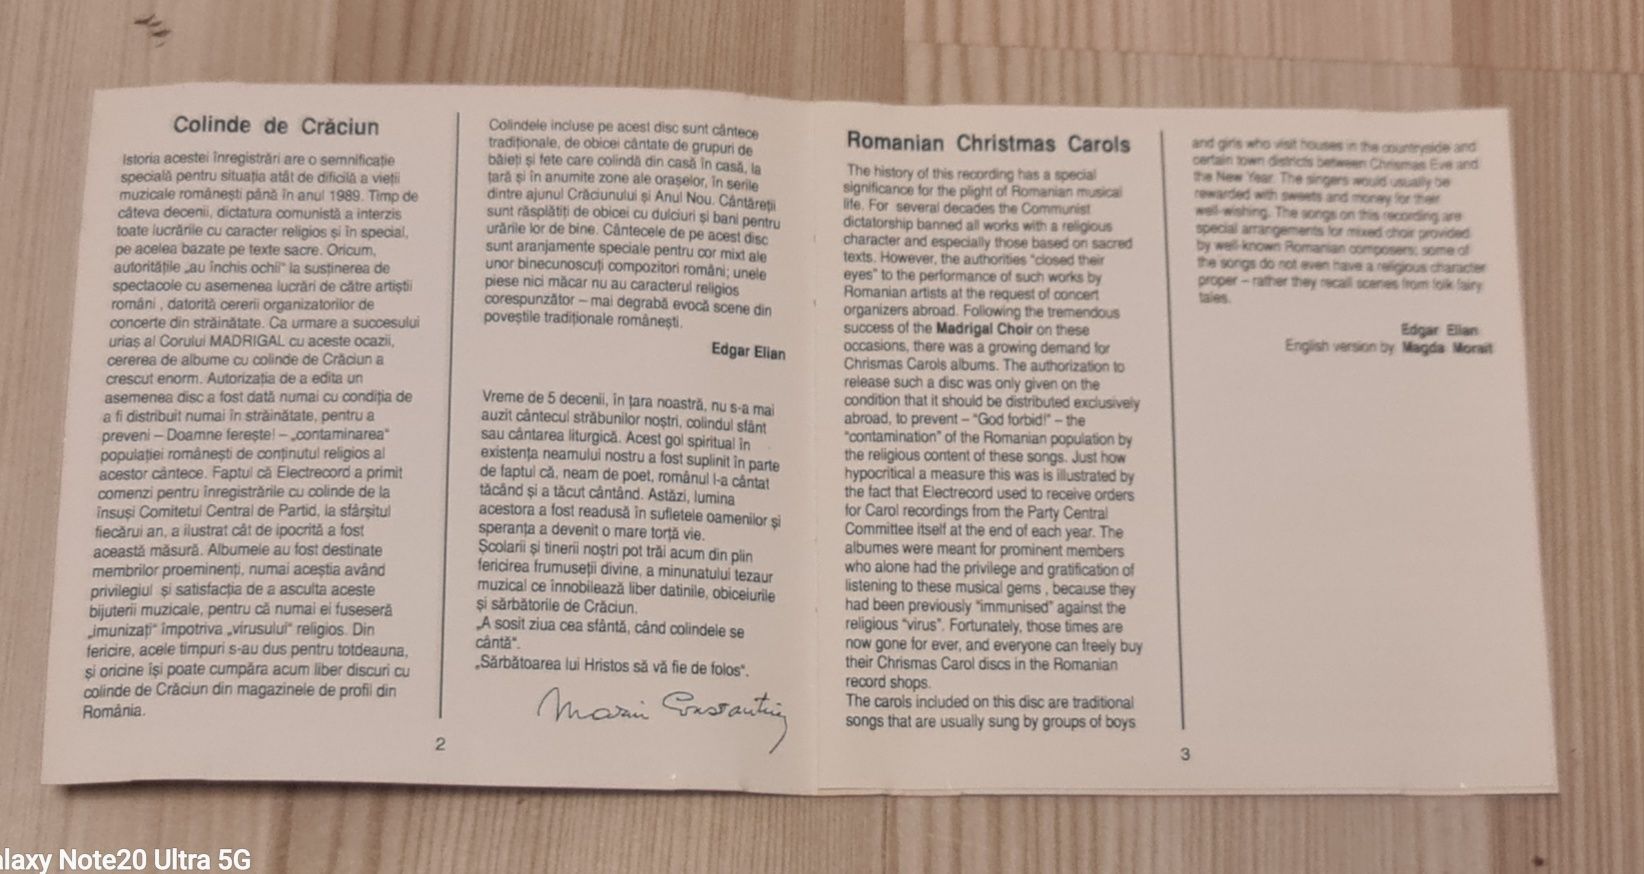 Colinde de Crăciun
Istoria acestei înregistrări are o semnificație
specială pentru situația atât de dificilă a vieții
muzicale românești până în anul 1989. Timp de
câteva decenii, dictatura comunistă a interzis
toate lucrările cu caracter religios și în special,
pe acelea bazate pe texte sacre. Oricum,
autoritățile „au închis ochii" la susținerea de
spectacole cu asemenea lucrări de către artiștii
români , datorită cererii organizatorilor de
concerte din străinătate. Ca urmare a succesului
uriaș al Corului MADRIGAL cu aceste ocazii,
cererea de albume cu colinde de Crăciun a
crescut enorm. Autorizația de a edita un
asemenea disc a fost dată numai cu condiția de
a fi distribuit numai în străinătate, pentru a
preveni – Doamne ferește! – „contaminarea"
populației românești de conținutul religios al
acestor cântece. Faptul că Electrecord a primit
comenzi pentru înregistrările cu colinde de la
însuși Comitetul Central de Partid, la sfârșitul
fiecărui an, a ilustrat cât de ipocrită a fost
această măsură. Albumele au fost destinate
membrilor proeminenți, numai aceștia având
privilegiul și satisfacția de a asculta aceste
bijuterii muzicale, pentru că numai ei fuseseră
„imunizați" împotriva „virusului" religios. Din
fericire, acele timpuri s-au dus pentru totdeauna,
și oricine își poate cumpăra acum liber discuri cu
colinde de Crăciun din magazinele de profil din
România.
Colindele incluse pe acest disc sunt cântece
tradiționale, de obicei cântate de grupuri de
băieți și fete care colindă din casă în casă, la
țară și în anumite zone ale orașelor, în serile
dintre ajunul Crăciunului și Anul Nou. Cântăreții
sunt răsplătiți de obicei cu dulciuri și bani pentru
urările lor de bine. Cântecele de pe acest disc
sunt aranjamente speciale pentru cor mixt ale
unor binecunoscuți compozitori români; unele
piese nici măcar nu au caracterul religios
corespunzător – mai degrabă evocă scene din
poveștile tradiționale românești.
Edgar Elian
Vreme de 5 decenii, în țara noastră, nu s-a mai
auzit cântecul străbunilor noștri, colindul sfânt
sau cântarea liturgică. Acest gol spiritual în
existența neamului nostru a fost suplinit în parte
de faptul că, neam de poet, românul l-a cântat
tăcând și a tăcut cântând. Astăzi, lumina
acestora a fost readusă în sufletele oamenilor și
speranța a devenit o mare torță vie.
Școlarii și tinerii noștri pot trăi acum din plin
fericirea frumuseții divine, a minunatului tezaur
muzical ce înnobilează liber datinile, obiceiurile
și sărbătorile de Crăciun.
„A sosit ziua cea sfântă, când colindele se
cântă".
„Sărbătoarea lui Hristos să vă fie de folos".
Marin Constantin
2
Romanian Christmas Carols
The history of this recording has a special
significance for the plight of Romanian musical
life. For several decades the Communist
dictatorship banned all works with a religious
character and especially those based on sacred
texts. However, the authorities "closed their
eyes" to the performance of such works by
Romanian artists at the request of concert
organizers abroad. Following the tremendous
success of the Madrigal Choir on these
occasions, there was a growing demand for
Chrismas Carols albums. The authorization to
release such a disc was only given on the
condition that it should be distributed exclusively
abroad, to prevent – "God forbid!" – the
"contamination" of the Romanian population by
the religious content of these songs. Just how
hypocritical a measure this was is illustrated by
the fact that Electrecord used to receive orders
for Carol recordings from the Party Central
Committee itself at the end of each year. The
albumes were meant for prominent members
who alone had the privilege and gratification of
listening to these musical gems , because they
had been previously "immunised" against the
religious "virus". Fortunately, those times are
now gone for ever, and everyone can freely buy
their Chrismas Carol discs in the Romanian
record shops.
The carols included on this disc are traditional
songs that are usually sung by groups of boys
and girls who visit houses in the countryside and
certain town districts between Chrismas Eve and
the New Year. The singers would usually be
rewarded with sweets and money for their
well-wishing. The songs on this recording are
special arrangements for mixed choir provided
by well-known Romanian composers; some of
the songs do not even have a religious character
proper – rather they recall scenes from folk fairy
tales.
Edgar Elian
English version by Magda Morait
3
alaxy Note20 Ultra 5G